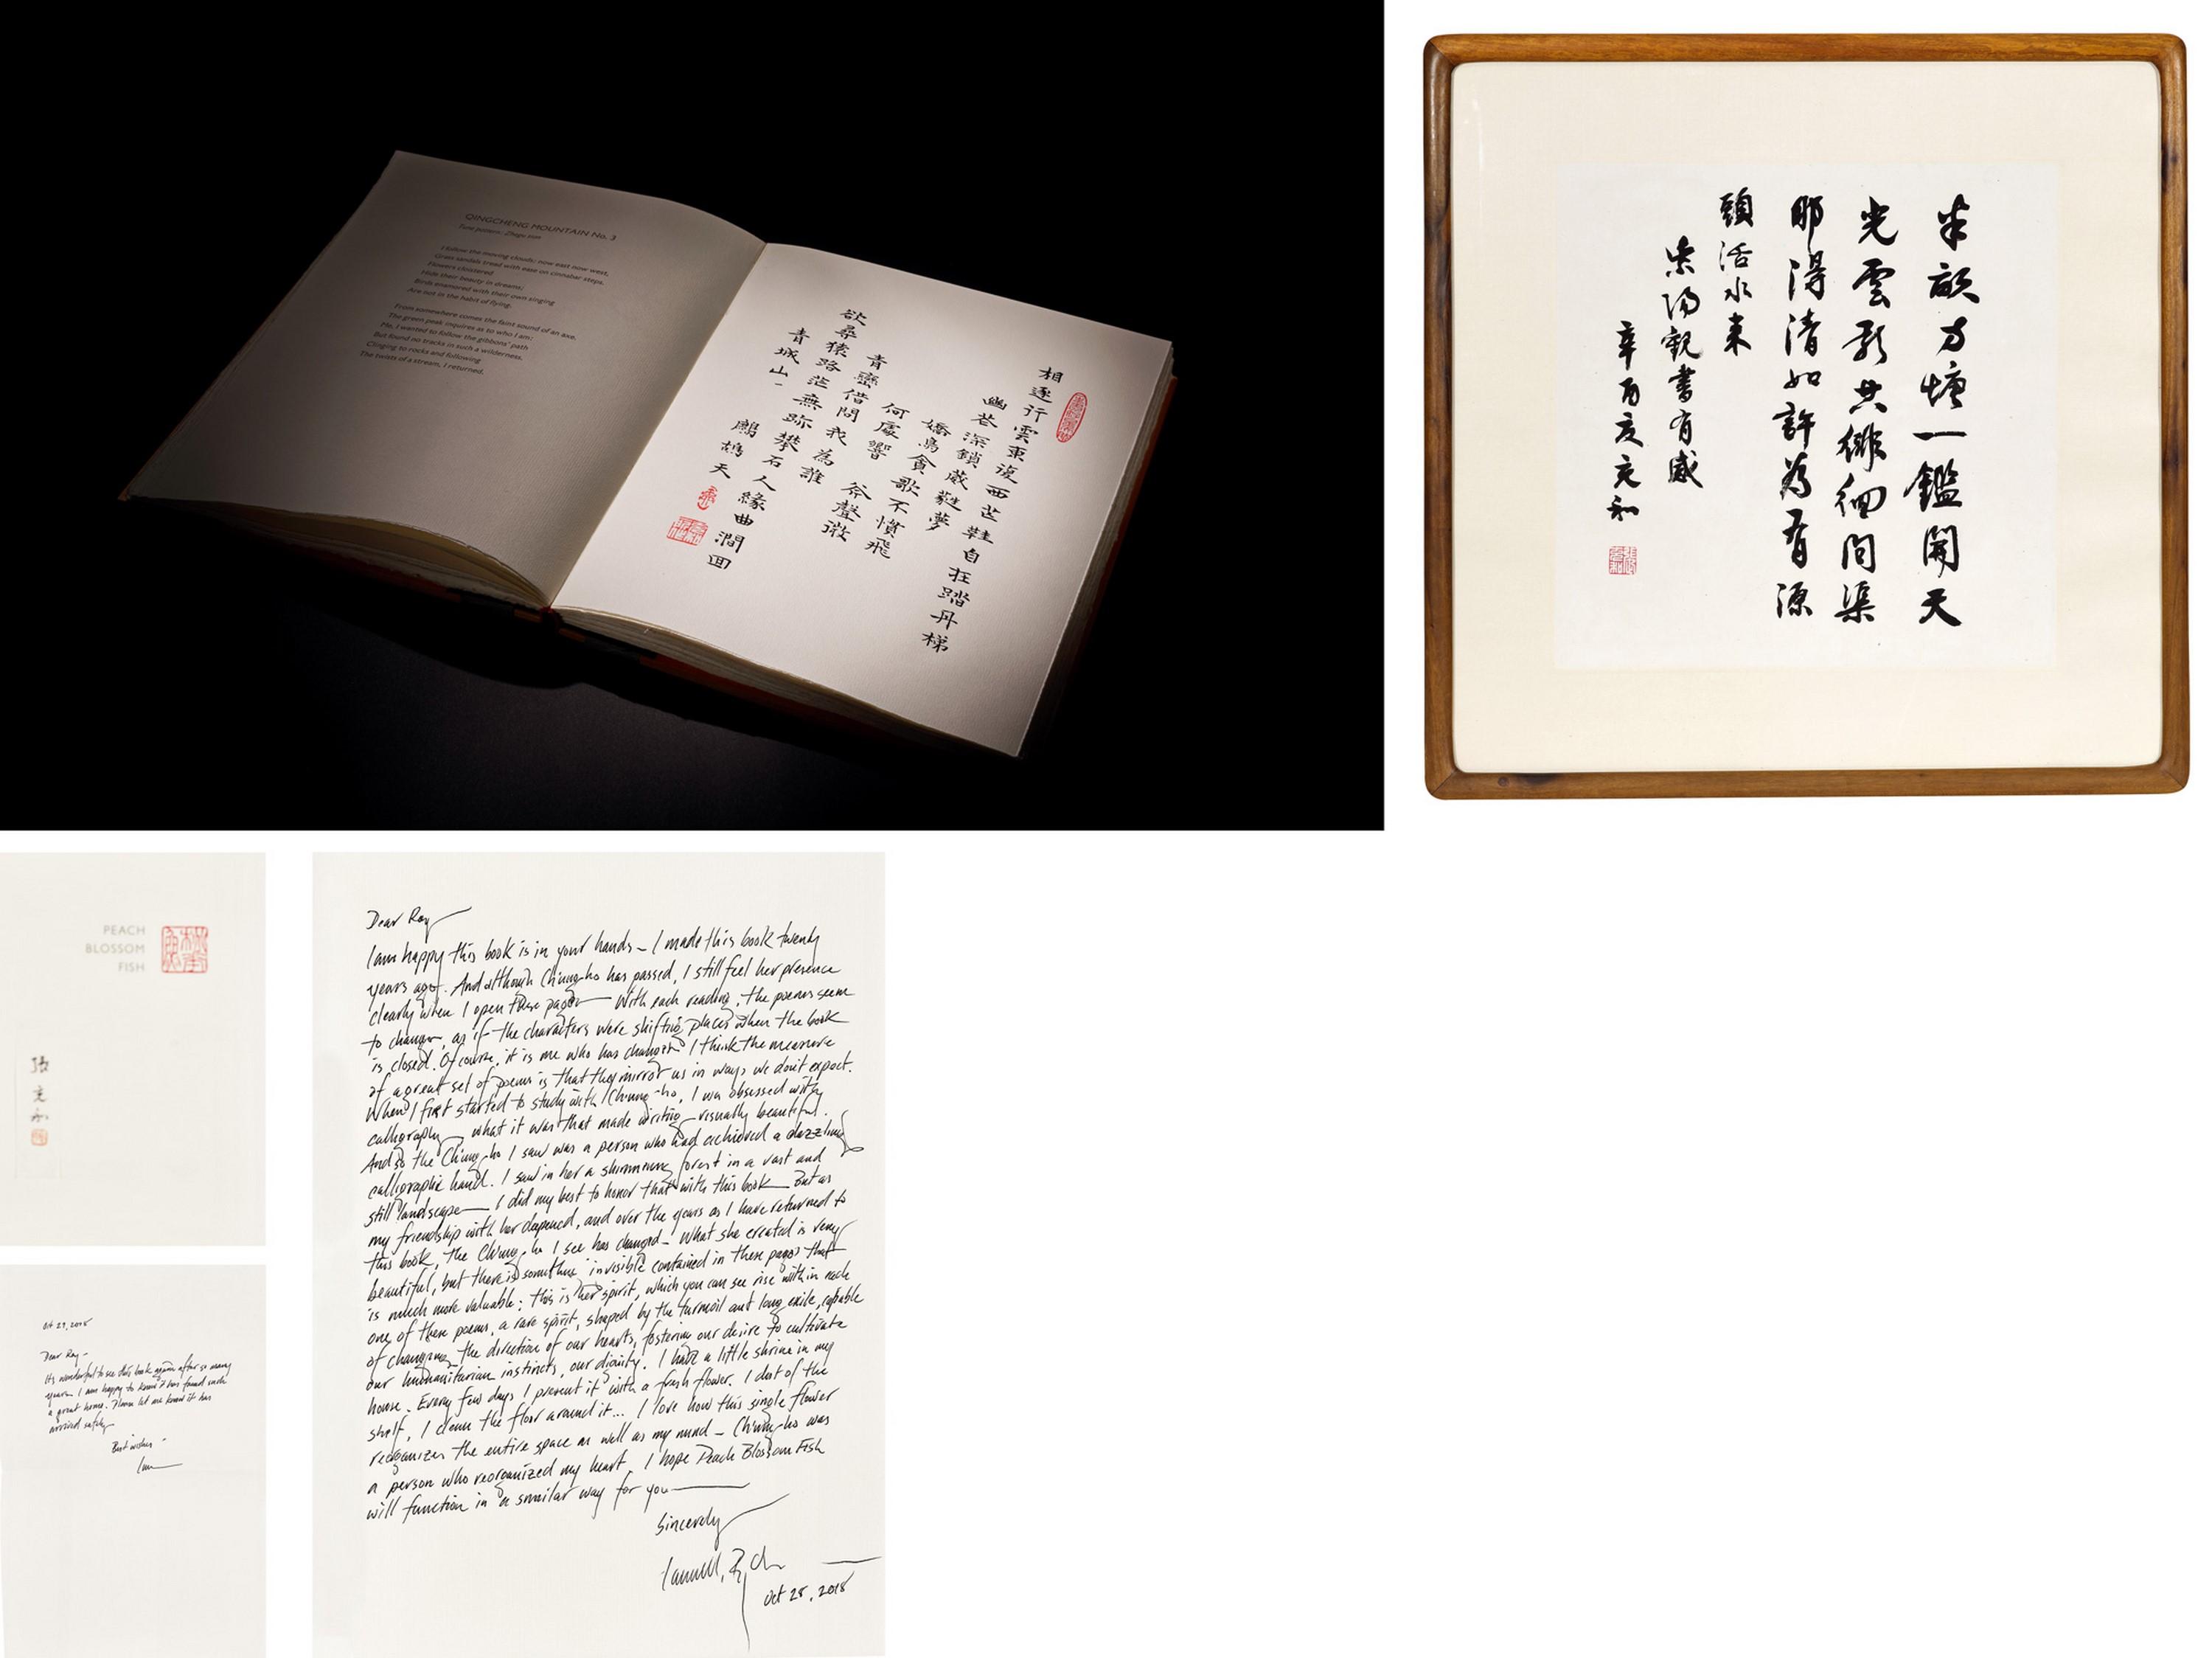 QINGCHENG MOUNTAIN No. 3
Tune pattern: Zhegu tian
I follow the moving clouds: now east now west,
Grass sandals tread with ease on cinnabar steps.
Flowers cloistered
Hide their beauty in dreams;
Birds enamored with their own singing
Are not in the habit of flying.
From somewhere comes the faint sound of an axe.
The green peak inquires as to who I am;
Me, I wanted to follow the gibbons' path
But found no tracks in such a wilderness.
Clinging to rocks and following
The twists of a stream, I returned.
相逐行雲東復西
芒鞋自在踏丹梯
幽花深鎖葳蕤夢
嬌鳥貪歌不慣飛
何處響
斧聲微
青巒借問我為誰
欲尋猿路茫無跡
攀石人緣曲澗回
青城山一
鷓鴣天
半畝方塘一鑑開天
光雲影共徘徊問渠
那得清如許為有源
頭活水來
紫陽觀書有感
辛酉夏充和
PEACH
BLOSSOM
FISH
張充和
Oct 29, 2018
Dear Ray –
It's wonderful to see this book again after so many
years. I am happy to know it has found such
a great home. Please let me know it has
arrived safely –
Best wishes –
Ian
Dear Ray
I am happy this book is in your hands – I made this book twenty
years ago. And although Ch'ung-ho has passed, I still feel her presence
clearly when I open these pages – With each reading, the poems seem
to change, as if the characters were shifting places when the book
is closed. Of course, it is me who has changed. I think the measure
of a great set of poems is that they mirror us in ways we don't expect.
When I first started to study with Ch'ung-ho, I was obsessed with
calligraphy – what it was that made writing visually beautiful.
And so the Ch'ung-ho I saw was a person who had achieved a dazzling
calligraphic hand. I saw in her a shimmering forest in a vast and
still landscape – I did my best to honor that with this book – But as
my friendship with her deepened, and over the years as I have returned to
this book, the Ch'ung-ho I see has changed – What she created is very
beautiful, but there is something invisible contained in these pages that
is much more valuable: this is her spirit, which you can see rise within each
one of these poems, a rare spirit, shaped by the turmoil and long exile, capable
of changing the direction of our hearts, fostering our desire to cultivate
our humanitarian instincts, our dignity. I have a little shrine in my
house. Every few days I present it with a fresh flower. I dust off the
shelf, I clean the floor around it... I love how this single flower
reorganizes the entire space as well as my mind – Ch'ung-ho was
a person who reorganized my heart. I hope Peach Blossom Fish
will function in a similar way for you –
Sincerely
Oct 28, 2018